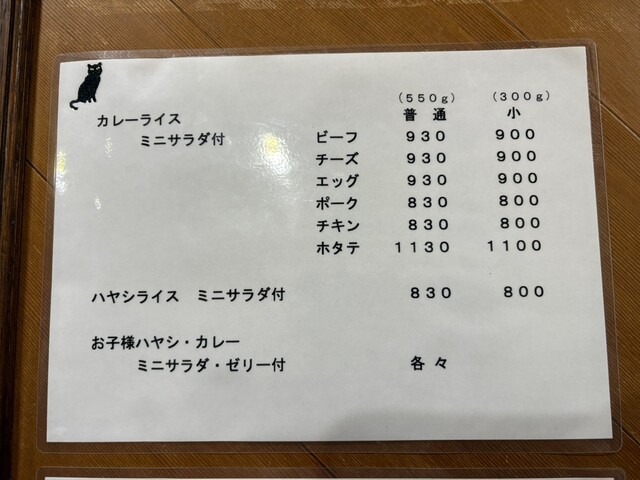 （５５０ｇ）（３００ｇ）
カレーライス 普 通 小
ミニサラダ付 ビーフ ９３０ ９００
チーズ ９３０ ９００
エッグ ９３０ ９００
ポーク ８３０ ８００
チキン ８３０ ８００
ホタテ １１３０ １１００
ハヤシライス ミニサラダ付 ８３０ ８００
お子様ハヤシ・カレー
ミニサラダ・ゼリー付 各々